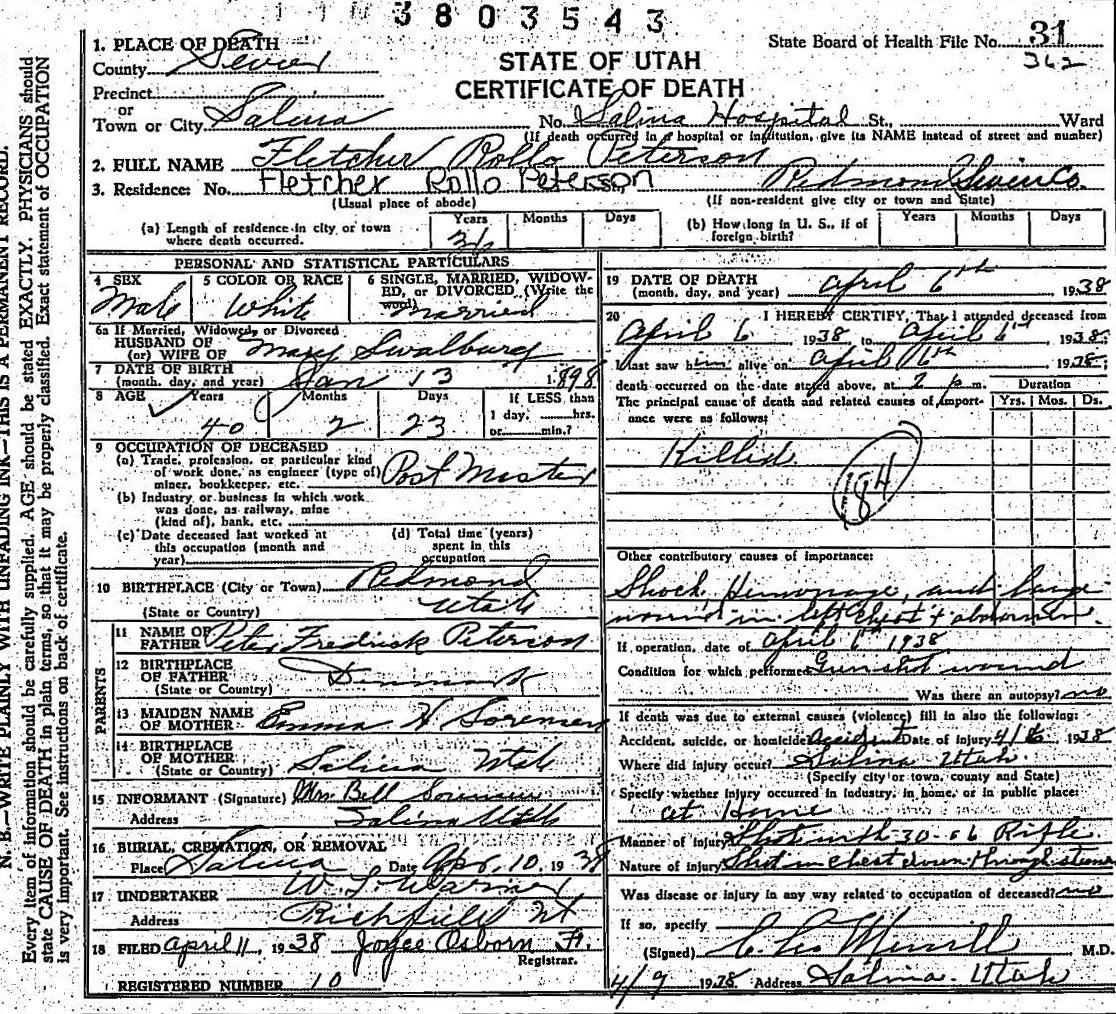 3803543
1. PLACE OF DEATH
County Sevier
Precinct
or
Town or City Salina
STATE OF UTAH
CERTIFICATE OF DEATH
State Board of Health File No. 31
362
No. Salina Hospital St., Ward
(If death occurred in a hospital or institution, give its NAME instead of street and number)
2. FULL NAME Fletcher Rollo Peterson
3. Residence: No. Fletcher Rollo Peterson Redmond Sevier Co.
(Usual place of abode) (If non-resident give city or town and State)
(a) Length of residence in city or town where death occurred. Years Months Days
(b) How long in U. S., if of foreign birth? Years Months Days
PERSONAL AND STATISTICAL PARTICULARS
4 SEX Male
5 COLOR OR RACE White
6 SINGLE, MARRIED, WIDOWED, or DIVORCED (Write the word) Married
6a If Married, Widowed, or Divorced
HUSBAND OF
(or) WIFE OF Mary Swalburg
7 DATE OF BIRTH
(month, day, and year) Jan 13 1898
8 AGE Years Months Days If LESS than
1 day, hrs.
or min.?
40 2 23
9 OCCUPATION OF DECEASED
(a) Trade, profession, or particular kind
of work done, as engineer (type of)
miner, bookkeeper, etc. Post Master
(b) Industry or business in which work
was done, as railway, mine
(kind of), bank, etc.
(c) Date deceased last worked at
this occupation (month and
year)
(d) Total time (years)
spent in this
occupation
10 BIRTHPLACE (City or Town) Redmond
(State or Country) Utah
PARENTS
11 NAME OF
FATHER Peter Fredrick Peterson
12 BIRTHPLACE
OF FATHER Denmark
(State or Country)
13 MAIDEN NAME
OF MOTHER Emma H Sorensen
14 BIRTHPLACE
OF MOTHER
(State or Country) Salina Utah
15 INFORMANT (Signature) Mrs. Bell Sorensen
Address Salina Utah
16 BURIAL, CREMATION, OR REMOVAL
Place Salina Date Apr. 10. 1938
17 UNDERTAKER
Address Richfield Ut
18 FILED April 11, 1938 Joyce Osborn
Registrar.
REGISTERED NUMBER 10
19 DATE OF DEATH
(month, day, and year) April 6th 1938
20 I HEREBY CERTIFY, That I attended deceased from
April 6 1938, to April 6th 1938.
I last saw him alive on April 6th 1938.
death occurred on the date stated above, at 2 p. m.
Duration
The principal cause of death and related causes of importance were as follows: Yrs. Mos. Ds.
Killed.
184
Other contributory causes of importance:
Shock, Hemorrage, and large
wound in left chest & abdomen.
If operation, date of April 6th 1938
Condition for which performed Gunshot wound
Was there an autopsy? no
If death was due to external causes (violence) fill in also the following:
Accident, suicide, or homicide Accident Date of injury 4/6 1938
Where did injury occur? Salina Utah.
(Specify city or town, county and State)
Specify whether injury occurred in industry, in home, or in public place:
at Home
Manner of injury Shot with 30-06 Rifle.
Nature of injury Shot in chest down through
Was disease or injury in any way related to occupation of deceased? no
If so, specify
(Signed) Merrill M.D.
4/9 1938 Address Salina Utah
N. B.—WRITE PLAINLY WITH UNFADING INK—THIS IS A PERMANENT RECORD.
Every item of information should be carefully supplied. AGE should be stated EXACTLY. PHYSICIANS should
state CAUSE OF DEATH in plain terms, so that it may be properly classified. Exact statement of OCCUPATION
is very important. See instructions on back of certificate.